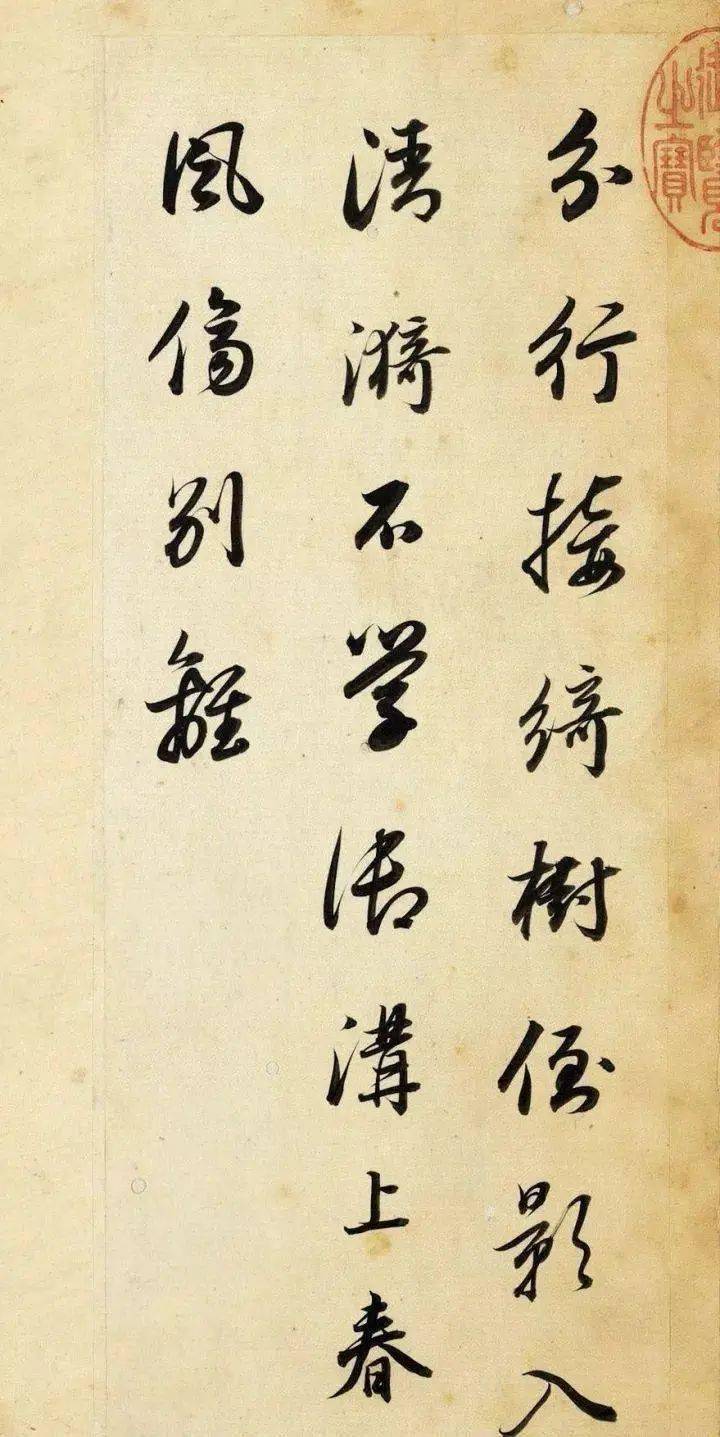 御覽
之寶
分行接綺樹倒影入
清漪不学御溝上春
風傷别離